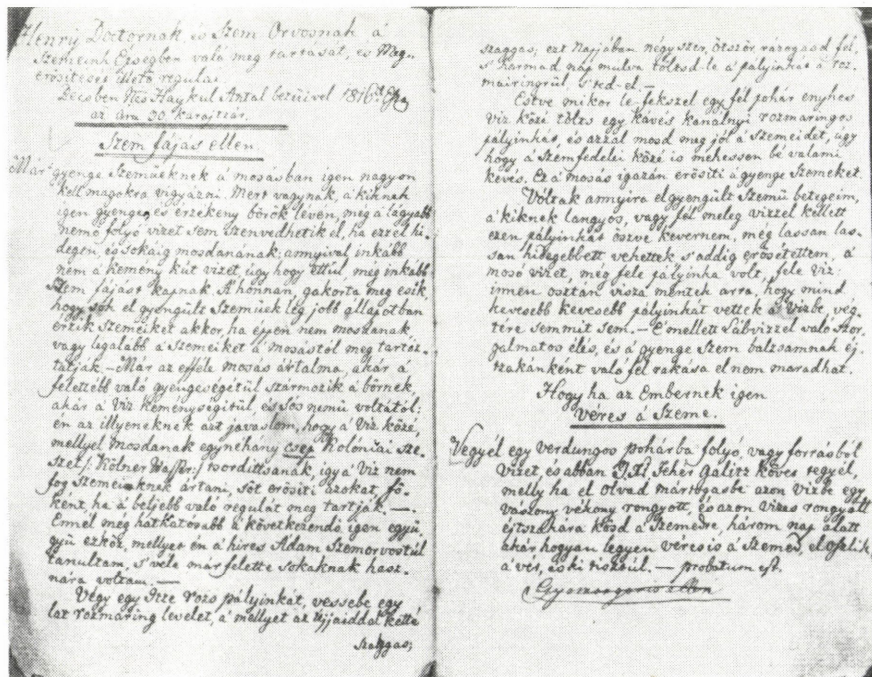 Henrij Doctornak, és Szem Orvosnak a'
Szemeink Épségben való meg tartását, és Meg-
erősitését illető regulai
Bécsben Nis Haykul Antal betüivel 1816
az ára 30. karajtzár.
Szem fájás ellen.
Már a' gyenge Szemüeknek a' mosásban igen nagyon
kell magokra vigyázni. Mert vagynak, a' kiknek
igen gyenge, és érzékeny börök lévén, még a' lágyabb
nemő folyó vizet sem szenvedhetik el, ha ezzel hi-
degen, és sokáig mosdanának; annyival inkább
nem a' kemény kút vizet, úgy hogy ettül, még inkább
Szem fájást kapnak. A'honnan, gakorta meg esik,
hogy sok el gyengült Szemüek lég jobb állapotban
érzik Szemeiket akkor, ha éppen nem mosdanak
vagy legalább a' Szemeiket a' mosástól meg tartóz-
tatják. — Már az efféle mosás ártalma, akár a'
felettébb való gyengeségitül származik a' börnek,
akár a' Viz keménységitül, és sós nemü voltától;
én az illyeneknek azt javaslom, hogy a' Viz közé,
mellyel mosdanak egynéhány csep Kolóniai Sze-
szet /: Kölner Wasser :/ tsordittsanak, igy a' Viz nem
fog Szemeiknek ártani, sőt erősiti azokat, fő-
ként, ha a' béljebb való regulát meg tartják. —.
Ennél még hathatósabb a' következendő igen együ-
gyü eszköz, mellyet én a' hires Ádám Szemorvostúl
tanultam, s' vele már felette sokaknak hasz-
nára voltam. —
Végy egy Itze rozs pályinkát, vess bele egy
lat rozmaring levelet, a' mellyet az újjaiddal ketté
szaggas;
szaggas; ezt Napjában négyszer, ötször rázogasd fel,
s' harmad nap mulva töltsd-le a' pályinkát a' roz-
maringrúl, s' ted-el. —
Estve mikor le-fekszel egy fél pohár enyhes
viz közi tölts egy kávés kanálnyi rozmaringos
pályinkát, és azzal mosd meg jól a' Szemeidet, úgy
hogy a' Szemfedelei közé is mehessen bé valami
kevés. Ez a' mosás igazán erősiti a' gyenge Szemeket.
Vóltak annyira el gyengült Szemü betegeim,
a' kiknek langyos, vagy fél meleg vizzel kellett
ezen pályinkát öszve kevernem, még lassan las-
san hidegebbett vehettek s' addig erősétettem, a'
mosó vizet, meg fele pályinka volt, fele viz:
innen osztán visza mentek arra, hogy mind
kevesebb kevesebb pályinkát vettek a' vizbe, vég-
tére semmit sem. — E'mellett Lábvizzel való szor-
galmatos élés, és a' gyenge Szem balzsamnak éj-
tzakánként való fel rakása el nem maradhat.
Hogy ha az Embernek igen
véres a' Szeme.
Végy él egy verdungos pohárba folyó, vagy forrásból
vizet, és abban Fehér Gálitz követ tegyél,
melly ha el olvad mártogasbé azon vizbe egy
vászony vékony rongyott, és azon vizes rongyátt
éjtszakára kösd a' Szemedre, három nap alatt
akár hogyan legyen véres is a' Szemed, el oszlik
a' vér, és ki tisztúl. — probatum est.